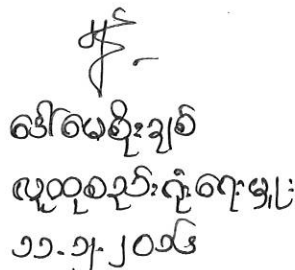 မှန်-
ဒေါ်မေစိုးချစ်
လူထုစည်းရုံးရေးမှူး
၁၁.၅.၂၀၁၆